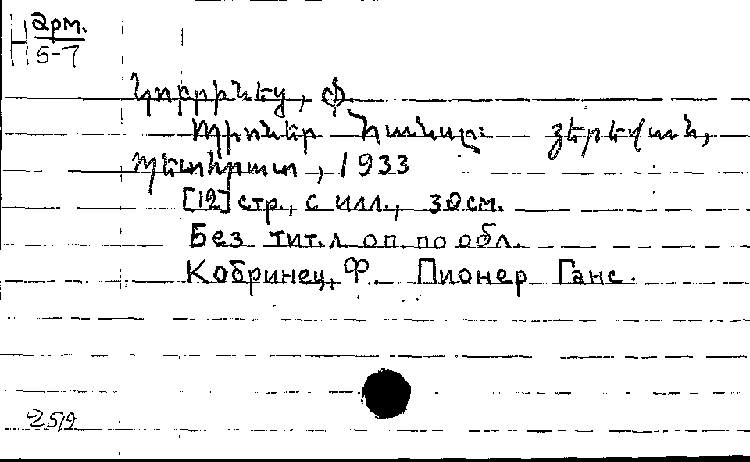 Н Арм.
5-7
Կոբրինեց, Ֆ.
Պիոներ Հանսը: Յերեվան,
Պետհրատ, 1933
[12] стр., с илл., 30 см.
Без тит. л. оп. по обл.
Кобринец, Ф. Пионер Ганс.